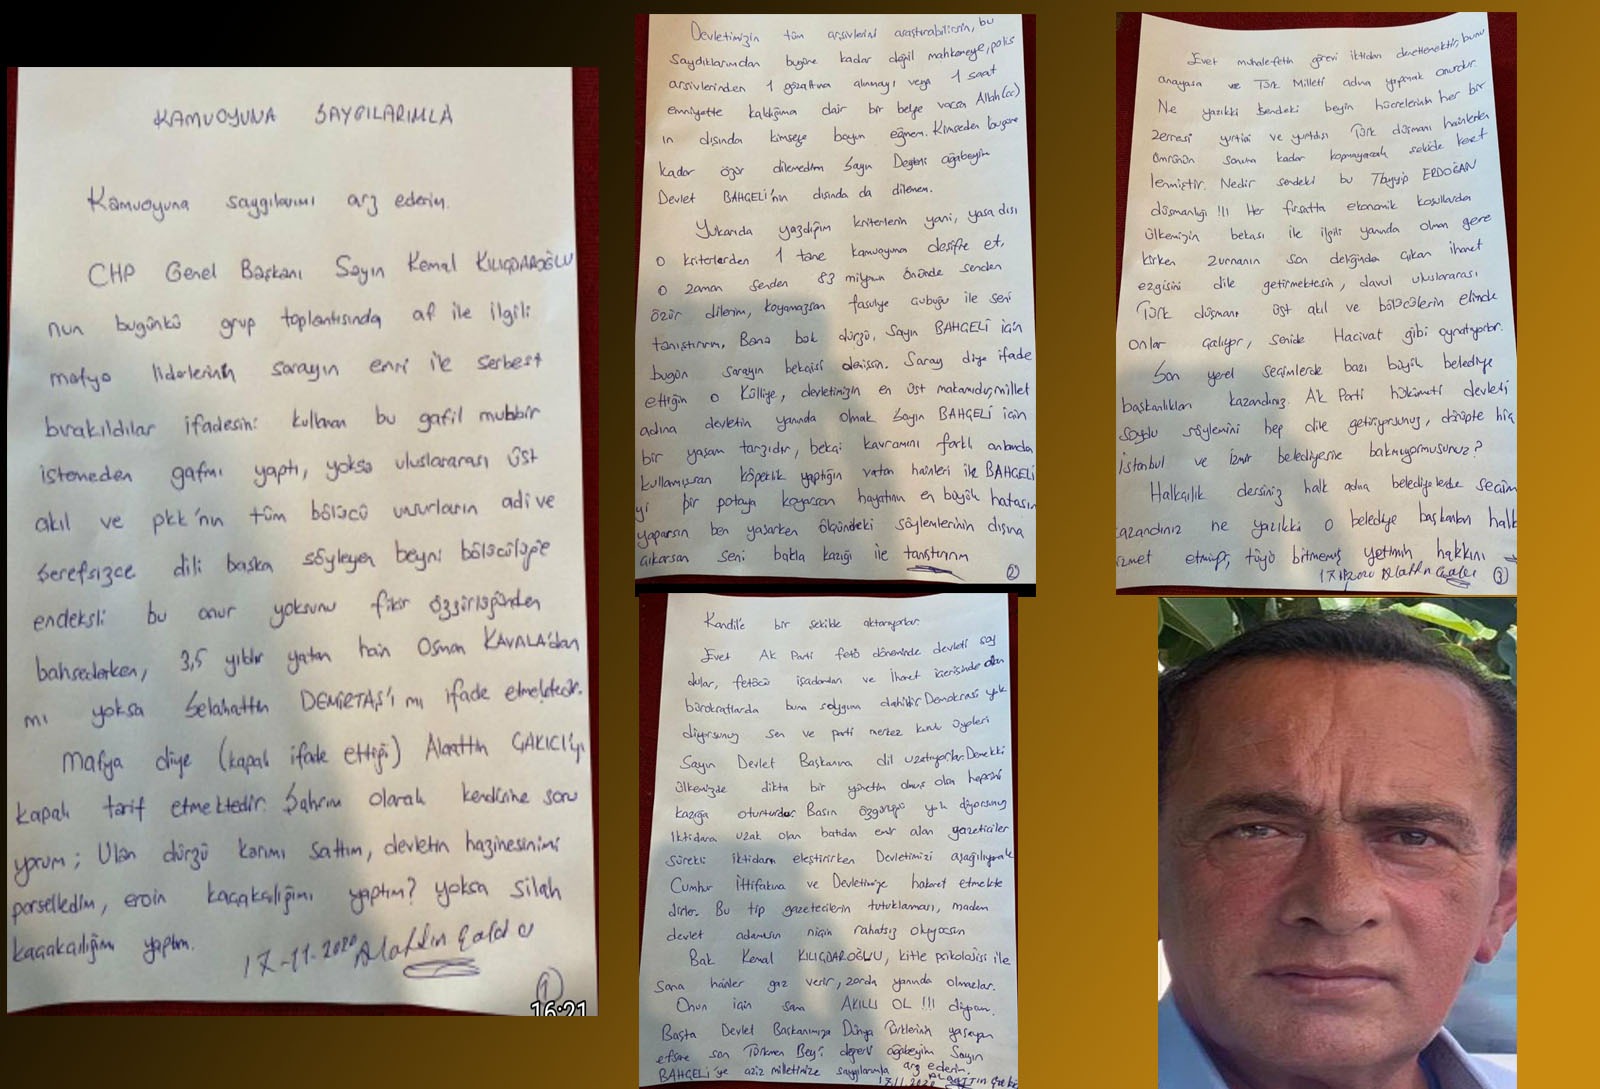 KAMUOYUNA SAYGILARIMLA
Kamuoyuna saygılarımı arz ederim.
CHP Genel Başkanı Sayın Kemal KILIÇDAROĞLU
nun bugünkü grup toplantısında af ile ilgili
mafya liderlerinin sarayın emri ile serbest
bırakıldılar ifadesini kullanan bu gafil muhbir
istemeden gafmı yaptı, yoksa uluslararası üst
akıl ve pkk'nın tüm bölücü unsurların adi ve
şerefsizce dili başka söyleyen beyni bölücülüğe
endeksli bu onur yoksunu fikir özgürlüğünden
bahsederken, 3,5 yıldır yatan hain Osman KAVALA'dan
mı yoksa Selahattin DEMİRTAŞ'ı mı ifade etmektedir.
Mafya diye (kapalı ifade ettiği) Alaattin ÇAKICI'yı
kapalı tarif etmektedir. Şahsım olarak kendisine soru
yorum; Ulan dürzü karımı sattım, devletin hazinesinimi
parselledim, eroin kaçakçılığımı yaptım? yoksa silah
kaçakçılığımı yaptım.
17-11-2020 Alattin Çakıcı
1
16:21
Devletimizin tüm arşivlerini araştırabilirsin, bu
saydıklarımdan bugüne kadar değil mahkemeye, polis
arşivlerinden 1 gözaltına alınmayı veya 1 saat
emniyette kaldığıma dair bir belge varsa Allah(cc)
ın dışında kimseye boyun eğmem. Kimseden bugüne
kadar özür dilemedim Sayın Değerli ağabeyim
Devlet BAHÇELİ'nin dışında da dilemem.
Yukarıda yazdığım kriterlerin yani, yasa dışı
o kriterlerden 1 tane kamuoyuna deşifre et,
o zaman senden 83 milyon önünde senden
özür dilerim, koyamazsan fasulye çubuğu ile seni
tanıştırırım, Bana bak dürzü, Sayın BAHÇELİ için
bugün sarayın bekçisi demişsin. Saray diye ifade
ettiğin o Külliye, devletimizin en üst makamıdır, millet
adına devletin yanında olmak Sayın BAHÇELİ için
bir yaşam tarzıdır, bekçi kavramını farklı anlamda
kullanmışsan köpeklik yaptığın vatan hainleri ile BAHÇELİ
yi bir potaya koyarsan hayatının en büyük hatasını
yaparsın ben yaşarken ölçündeki söylemlerinin dışına
çıkarsan seni bakla kazığı ile tanıştırırım
2
Evet muhalefetin görevi iktidarı denetlemektir, bunu
anayasa ve Türk Milleti adına yapmak onurdur.
Ne yazıkki sendeki beyin hücrelerinin her bir
zerresi yurtiçi ve yurtdışı Türk düşmanı hainlerden
ömrünün sonuna kadar kopmayacak şekilde kenet
lenmiştir. Nedir sendeki bu Tayyip ERDOĞAN
düşmanlığı !!! Her fırsatta ekonomik koşullarda
ülkemizin bekası ile ilgili yanında olman gere
kirken zurnanın son deliğinde çıkan ihanet
ezgisini dile getirmektesin, davul uluslararası
Türk düşmanı üst akıl ve bölücülerin elinde
onlar çalıyor, senide Hacivat gibi oynatıyorlar.
Son yerel seçimlerde bazı büyük belediye
başkanlıkları kazandınız. Ak Parti hükümeti devleti
soydu söylemini hep dile getiriyorsunuz, dönüpte hiç
İstanbul ve İzmir belediyesine bakmıyormusunuz?
Halkçılık dersiniz halk adına belediyelerde seçim
kazandınız ne yazıkki o belediye başkanları halka
hizmet etmeyip, tüyü bitmemiş yetimin hakkını
17.11.2020 Alattin Çakıcı 3
Kandil'e bir şekilde aktarıyorlar.
Evet Ak Parti fetö döneminde devleti soy
dular, fetöcü işadamları ve İhanet içerisinde olan
bürokratlarda buna soyguna dahildir. Demokrasi yok
diyorsunuz sen ve parti merkez kurulu üyeleri
Sayın Devlet Başkanına dil uzatıyorlar. Demekki
ülkemizde dikta bir yönetim olmuş olsa hepinizi
kazığa oturturdu. Basın özgürlüğü yok diyorsunuz
İktidara uzak olan batıdan emir alan gazeteciler
sürekli iktidarı eleştirirken Devletimizi aşağılıyarak
Cumhur İttifakına ve Devletimize hakaret etmekte
dirler. Bu tip gazetecilerin tutuklaması, madem
devlet adamısın niçin rahatsız oluyorsun
Bak Kemal KILIÇDAROĞLU, kitle psikolojisi ile
sana hainler gaz verir, zorda yanında olmazlar.
Onun için sana AKILLI OL !!! diyorum.
Başta Devlet Başkanımıza Dünya Türklerinin yaşayan
efsane son Türkmen Beyi değerli ağabeyim Sayın
BAHÇELİ'ye aziz milletimize saygılarımla arz ederim.
17.11.2020 Alattin Çakıcı